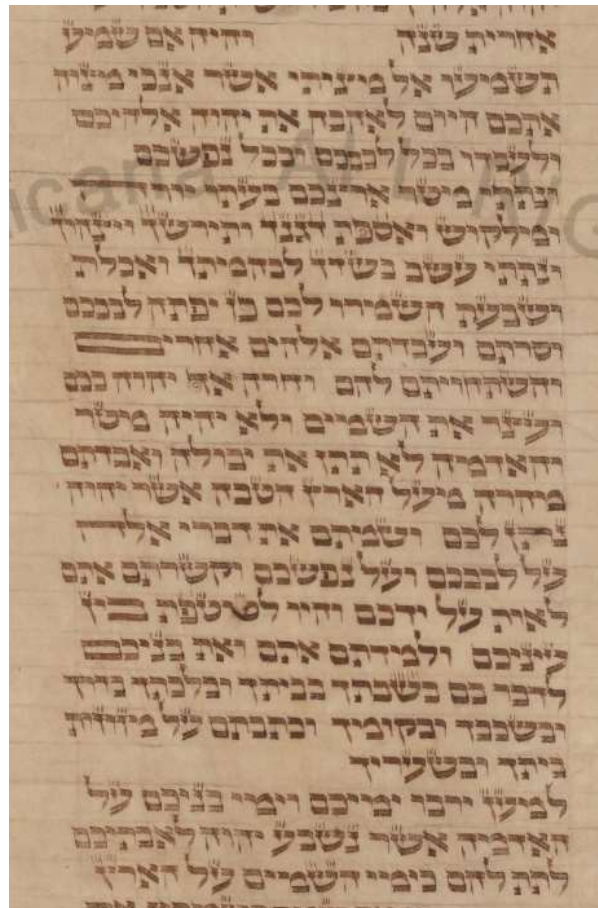 אחרית שנה והיה אם שמע
תשמעו אל מצותי אשר אנכי מצוה
אתכם היום לאהבה את יהוה אלהיכם
ולעבדו בכל לבבכם ובכל נפשכם
ונתתי מטר ארצכם בעתו יורה
ומלקוש ואספת דגנך ותירשך ויצהרך
ונתתי עשב בשדך לבהמתך ואכלת
ושבעת השמרו לכם פן יפתה לבבכם
וסרתם ועבדתם אלהים אחרים
והשתחויתם להם וחרה אף יהוה בכם
ועצר את השמים ולא יהיה מטר
והאדמה לא תתן את יבולה ואבדתם
מהרה מעל הארץ הטבה אשר יהוה
נתן לכם ושמתם את דברי אלה
על לבבכם ועל נפשכם וקשרתם אתם
לאות על ידכם והיו לטוטפת בין
עיניכם ולמדתם אתם את בניכם
לדבר בם בשבתך בביתך ובלכתך בדרך
ובשכבך ובקומך וכתבתם על מזוזות
ביתך ובשעריך
למען ירבו ימיכם וימי בניכם על
האדמה אשר נשבע יהוה לאבתיכם
לתת להם כימי השמים על הארץ